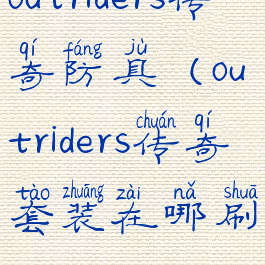 outriders传
qí fáng jù
奇防具(ou
chuán qí
triders传奇
tào zhuāng zài nǎ shuā
套装在哪刷